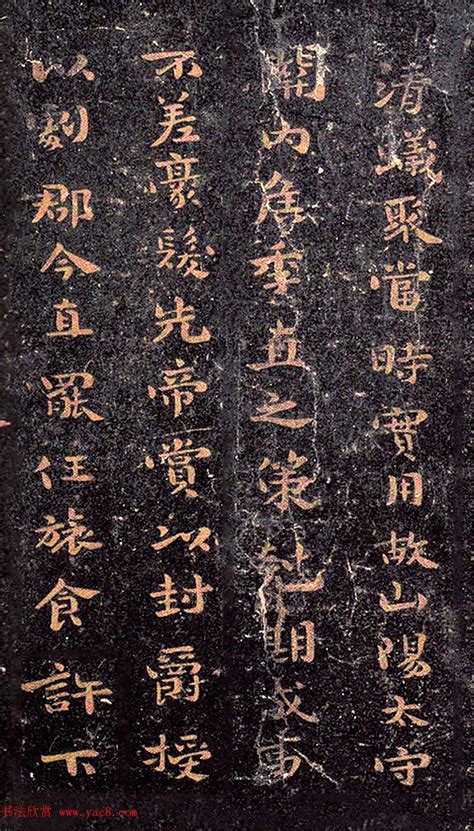 清蟻聚當時實用故山陽太守
關內侯季直之策尅期成事
不差豪髮先帝賞以封爵授
以劇郡今直罷任旅食許下
书法欣赏 www.yac8.com